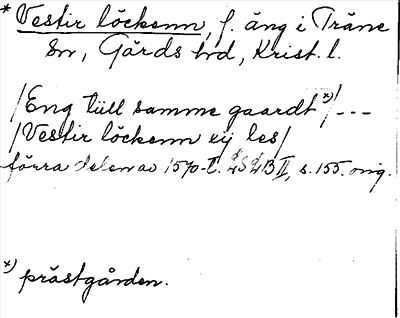 * Vestir löckenn, f. äng i Träne
sn, Gärds hd, Krist. l.
/Eng tüll samme gaardt x)/---
/Vestir löckenn eij les/
förra delen av 1570-t. LSLB II, s. 155. orig.
x) prästgården.